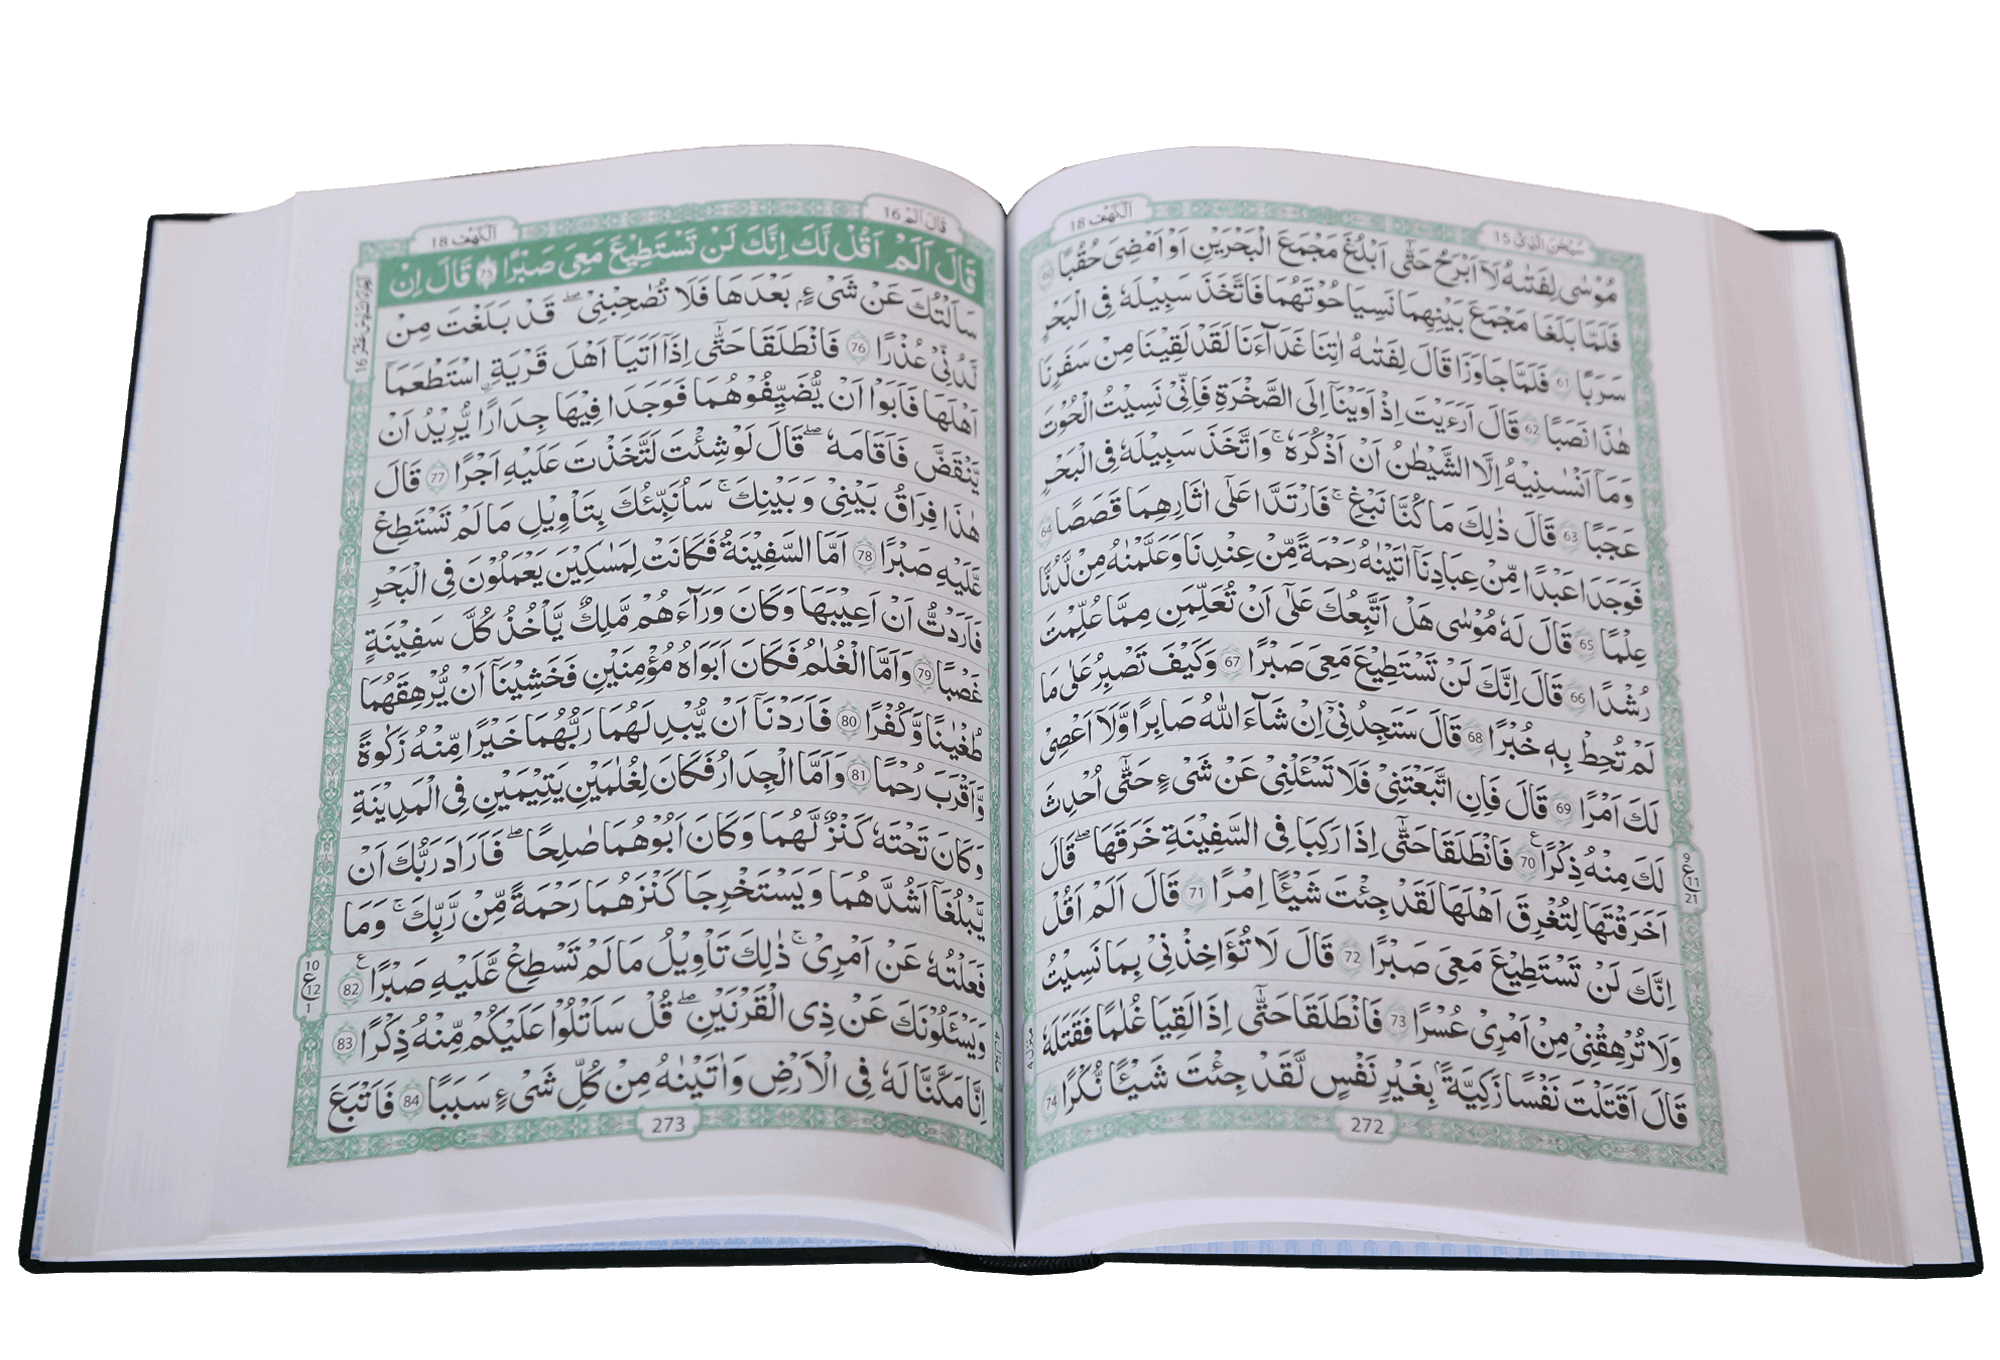 الكهف 18
سبحن الذي 15
مُوْسٰى لِفَتٰىهُ لَاۤ اَبْرَحُ حَتّٰۤى اَبْلُغَ مَجْمَعَ الْبَحْرَيْنِ اَوْ اَمْضِىَ حُقُبًا 60
فَلَمَّا بَلَغَا مَجْمَعَ بَيْنِهِمَا نَسِيَا حُوْتَهُمَا فَاتَّخَذَ سَبِيْلَهٗ فِى الْبَحْرِ
سَرَبًا 61 فَلَمَّا جَاوَزَا قَالَ لِفَتٰىهُ اٰتِنَا غَدَآءَنَا لَقَدْ لَقِيْنَا مِنْ سَفَرِنَا
هٰذَا نَصَبًا 62 قَالَ اَرَءَيْتَ اِذْ اَوَيْنَاۤ اِلَى الصَّخْرَةِ فَاِنِّىْ نَسِيْتُ الْحُوْتَ
وَمَاۤ اَنْسٰىنِيْهُ اِلَّا الشَّيْطٰنُ اَنْ اَذْكُرَهٗ ۚ وَاتَّخَذَ سَبِيْلَهٗ فِى الْبَحْرِ
عَجَبًا 63 قَالَ ذٰلِكَ مَا كُنَّا نَبْغِ ۚ فَارْتَدَّا عَلٰۤى اٰثَارِهِمَا قَصَصًا 64
فَوَجَدَا عَبْدًا مِّنْ عِبَادِنَاۤ اٰتَيْنٰهُ رَحْمَةً مِّنْ عِنْدِنَا وَعَلَّمْنٰهُ مِنْ لَّدُنَّا
عِلْمًا 65 قَالَ لَهٗ مُوْسٰى هَلْ اَتَّبِعُكَ عَلٰۤى اَنْ تُعَلِّمَنِ مِمَّا عُلِّمْتَ
رُشْدًا 66 قَالَ اِنَّكَ لَنْ تَسْتَطِيْعَ مَعِىَ صَبْرًا 67 وَكَيْفَ تَصْبِرُ عَلٰى مَا
لَمْ تُحِطْ بِهٖ خُبْرًا 68 قَالَ سَتَجِدُنِىْۤ اِنْ شَآءَ اللّٰهُ صَابِرًا وَّلَاۤ اَعْصِىْ
لَكَ اَمْرًا 69 قَالَ فَاِنِ اتَّبَعْتَنِىْ فَلَا تَسْئَلْنِىْ عَنْ شَىْءٍ حَتّٰۤى اُحْدِثَ
لَكَ مِنْهُ ذِكْرًا 70 ع فَانْطَلَقَا حَتّٰۤى اِذَا رَكِبَا فِى السَّفِيْنَةِ خَرَقَهَا ؕ قَالَ
اَخَرَقْتَهَا لِتُغْرِقَ اَهْلَهَا لَقَدْ جِئْتَ شَيْئًا اِمْرًا 71 قَالَ اَلَمْ اَقُلْ
اِنَّكَ لَنْ تَسْتَطِيْعَ مَعِىَ صَبْرًا 72 قَالَ لَا تُؤَاخِذْنِىْ بِمَا نَسِيْتُ
وَلَا تُرْهِقْنِىْ مِنْ اَمْرِىْ عُسْرًا 73 فَانْطَلَقَا حَتّٰۤى اِذَا لَقِيَا غُلٰمًا فَقَتَلَهٗ
قَالَ اَقَتَلْتَ نَفْسًا زَكِيَّةًۢ بِغَيْرِ نَفْسٍ لَّقَدْ جِئْتَ شَيْئًا نُّكْرًا 74
9
ع
11
21
منزل 4
272
قال الم 16
الكهف 18
قَالَ اَلَمْ اَقُلْ لَّكَ اِنَّكَ لَنْ تَسْتَطِيْعَ مَعِىَ صَبْرًا 75 قَالَ اِنْ
سَاَلْتُكَ عَنْ شَىْءٍۢ بَعْدَهَا فَلَا تُصٰحِبْنِىْ ۖ قَدْ بَلَغْتَ مِنْ
لَّدُنِّىْ عُذْرًا 76 فَانْطَلَقَا حَتّٰۤى اِذَاۤ اَتَيَاۤ اَهْلَ قَرْيَةِ اِۨسْتَطْعَمَاۤ
اَهْلَهَا فَاَبَوْا اَنْ يُّضَيِّفُوْهُمَا فَوَجَدَا فِيْهَا جِدَارًا يُّرِيْدُ اَنْ
يَّنْقَضَّ فَاَقَامَهٗ ۖ قَالَ لَوْ شِئْتَ لَتَّخَذْتَ عَلَيْهِ اَجْرًا 77 قَالَ
هٰذَا فِرَاقُ بَيْنِىْ وَبَيْنِكَ ۚ سَاُنَبِّئُكَ بِتَاْوِيْلِ مَا لَمْ تَسْتَطِعْ
عَّلَيْهِ صَبْرًا 78 اَمَّا السَّفِيْنَةُ فَكَانَتْ لِمَسٰكِيْنَ يَعْمَلُوْنَ فِى الْبَحْرِ
فَاَرَدْتُّ اَنْ اَعِيْبَهَا وَكَانَ وَرَآءَهُمْ مَّلِكٌ يَّاْخُذُ كُلَّ سَفِيْنَةٍ
غَصْبًا 79 وَاَمَّا الْغُلٰمُ فَكَانَ اَبَوَاهُ مُؤْمِنَيْنِ فَخَشِيْنَاۤ اَنْ يُّرْهِقَهُمَا
طُغْيٰنًا وَّكُفْرًا 80 فَاَرَدْنَاۤ اَنْ يُّبْدِلَهُمَا رَبُّهُمَا خَيْرًا مِّنْهُ زَكٰوةً
وَّاَقْرَبَ رُحْمًا 81 وَاَمَّا الْجِدَارُ فَكَانَ لِغُلٰمَيْنِ يَتِيْمَيْنِ فِى الْمَدِيْنَةِ
وَكَانَ تَحْتَهٗ كَنْزٌ لَّهُمَا وَكَانَ اَبُوْهُمَا صٰلِحًا ۖ فَاَرَادَ رَبُّكَ اَنْ
يَّبْلُغَاۤ اَشُدَّهُمَا وَيَسْتَخْرِجَا كَنْزَهُمَا رَحْمَةً مِّنْ رَّبِّكَ ۚ وَمَا
فَعَلْتُهٗ عَنْ اَمْرِىْ ۚ ذٰلِكَ تَاْوِيْلُ مَا لَمْ تَسْطِعْ عَّلَيْهِ صَبْرًا 82 ع
وَيَسْئَلُوْنَكَ عَنْ ذِى الْقَرْنَيْنِ ۖ قُلْ سَاَتْلُوْا عَلَيْكُمْ مِّنْهُ ذِكْرًا 83
اِنَّا مَكَّنَّا لَهٗ فِى الْاَرْضِ وَاٰتَيْنٰهُ مِنْ كُلِّ شَىْءٍ سَبَبًا 84 فَاَتْبَعَ
10
ع
12
1
منزل 4
273